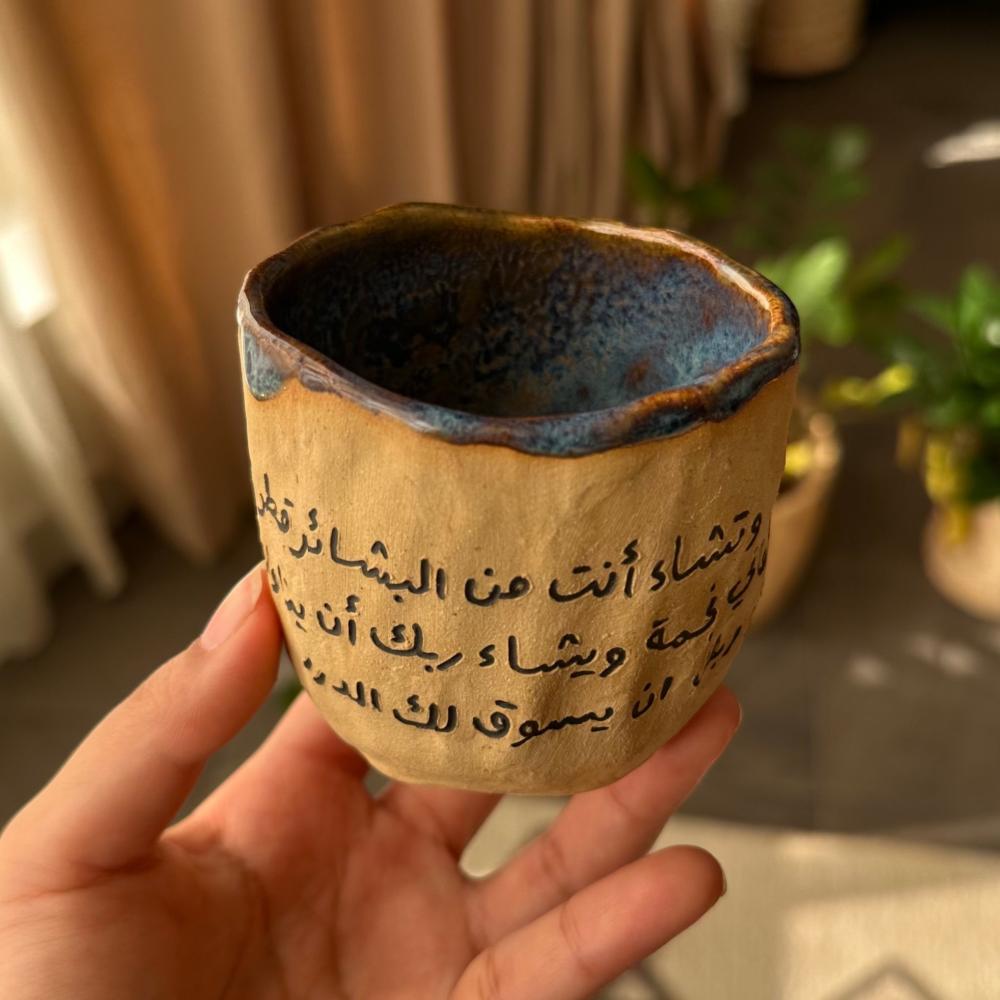 وتشاء أنت من البشائر قطر
نجمة ويشاء ربك أن
ان يسوق لك الدرر